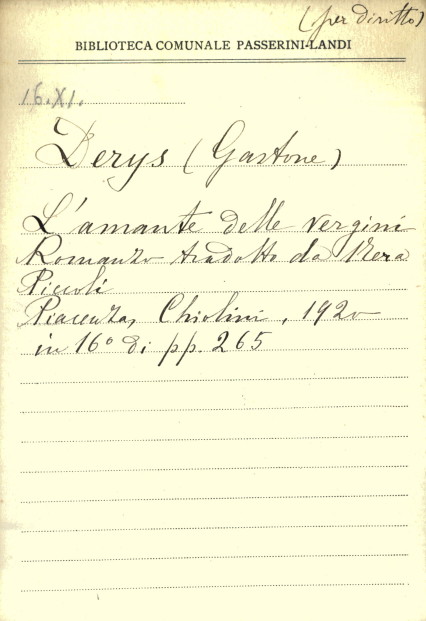 (per diritto)
BIBLIOTECA COMUNALE PASSERINI-LANDI
16.XI.
Derys (Gastone)
L'amante delle vergini
Romanzo tradotto da Vera
Piccoli
Piacenza, Chiolini, 1920
in 16º di pp. 265